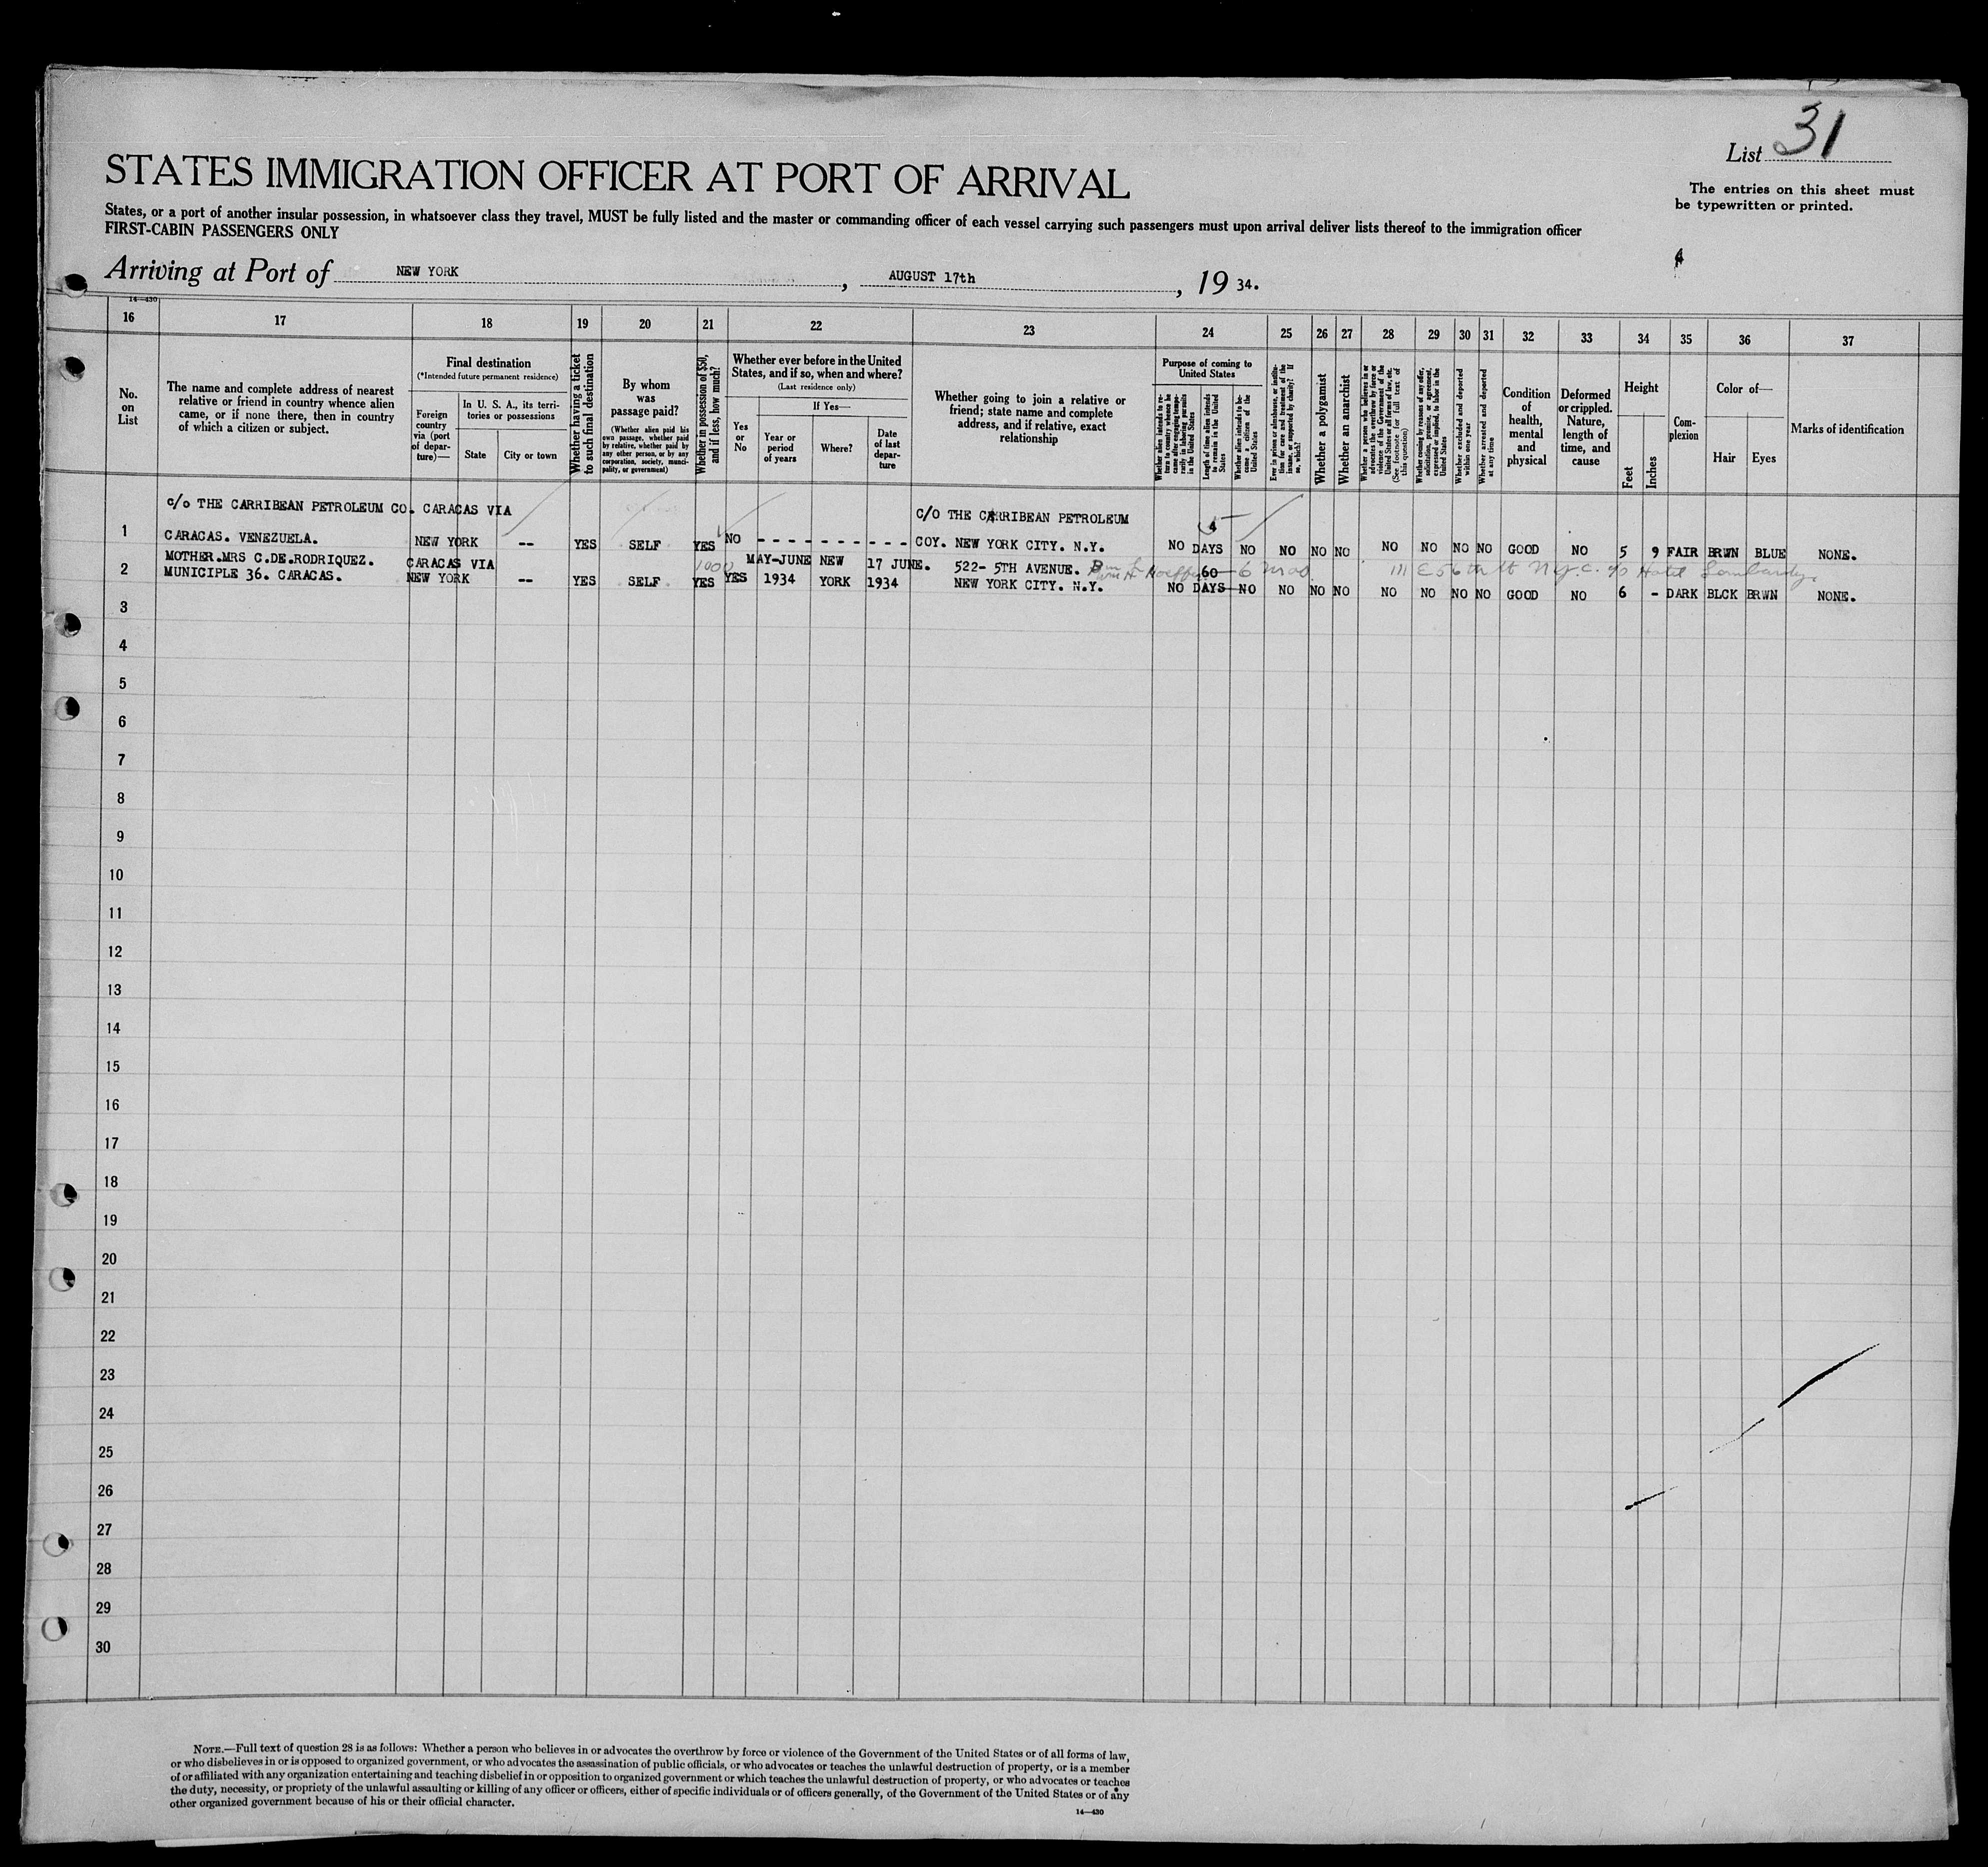 List 31
The entries on this sheet must
be typewritten or printed.
STATES IMMIGRATION OFFICER AT PORT OF ARRIVAL
States, or a port of another insular possession, in whatsoever class they travel, MUST be fully listed and the master or commanding officer of each vessel carrying such passengers must upon arrival deliver lists thereof to the immigration officer
FIRST-CABIN PASSENGERS ONLY
4
Arriving at Port of NEW YORK, AUGUST 17th, 19 34.
14—430
16 17 18 19 20 21 22 23 24 25 26 27 28 29 30 31 32 33 34 35 36 37
No.
on
List
The name and complete address of nearest
relative or friend in country whence alien
came, or if none there, then in country
of which a citizen or subject.
Final destination
(*Intended future permanent residence)
Foreign
country
via (port
of depar-
ture)—
In U. S. A., its terri-
tories or possessions
State
City or town
Whether having a ticket
to such final destination
By whom
was
passage paid?
(Whether alien paid his
own passage, whether paid
by relative, whether paid by
any other person, or by any
corporation, society, munici-
pality, or government)
Whether in possession of $50,
and if less, how much?
Whether ever before in the United
States, and if so, when and where?
(Last residence only)
Yes
or
No
If Yes—
Year or
period
of years
Where?
Date
of last
depar-
ture
Whether going to join a relative or
friend; state name and complete
address, and if relative, exact
relationship
Purpose of coming to
United States
Whether alien intends to re-
turn to country whence he
came after engaging tempo-
rarily in laboring pursuits
in the United States
Length of time alien intends
to remain in the United
States
Whether alien intends to be-
come a citizen of the
United States
Ever in prison or almshouse, or institu-
tion for care and treatment of the
insane, or supported by charity? If
so, which?
Whether a polygamist
Whether an anarchist
Whether a person who believes in or
advocates the overthrow by force or
violence of the Government of the
United States or all forms of law, etc.
(See footnote for full text of
this question)
Whether coming by reasons of any offer,
solicitation, promise, or agreement,
expressed or implied, to labor in the
United States
Whether excluded and deported
within one year
Whether arrested and deported
at any time
Condition
of
health,
mental
and
physical
Deformed
or crippled.
Nature,
length of
time, and
cause
Height
Feet
Inches
Com-
plexion
Color of—
Hair
Eyes
Marks of identification
c/o THE CARRIBEAN PETROLEUM CO. CARACAS VIA C/O THE CARRIBEAN PETROLEUM 4
1 CARACAS. VENEZUELA. NEW YORK -- YES SELF YES NO - - - - - - - - - - COY. NEW YORK CITY. N.Y. NO DAYS NO NO NO NO NO NO NO NO GOOD NO 5 9 FAIR BRWN BLUE NONE.
MOTHER.MRS C.DE.RODRIQUEZ. CARACAS VIA 1000 MAY-JUNE NEW 17 JUNE. 522- 5TH AVENUE. 60 6 mos 111 E 56th St N.Y.C. c/o Hotel Lombardy.
2 MUNICIPLE 36. CARACAS. NEW YORK -- YES SELF YES YES 1934 YORK 1934 NEW YORK CITY. N.Y. NO DAYS NO NO NO NO NO NO NO NO GOOD NO 6 - DARK BLCK BRWN NONE.
3
4
5
6
7
8
9
10
11
12
13
14
15
16
17
18
19
20
21
22
23
24
25
26
27
28
29
30
NOTE.—Full text of question 28 is as follows: Whether a person who believes in or advocates the overthrow by force or violence of the Government of the United States or of all forms of law,
or who disbelieves in or is opposed to organized government, or who advocates the assassination of public officials, or who advocates or teaches the unlawful destruction of property, or is a member
of or affiliated with any organization entertaining and teaching disbelief in or opposition to organized government or which teaches the unlawful destruction of property, or who advocates or teaches
the duty, necessity, or propriety of the unlawful assaulting or killing of any officer or officers, either of specific individuals or of officers generally, of the Government of the United States or of any
other organized government because of his or their official character.
14—430